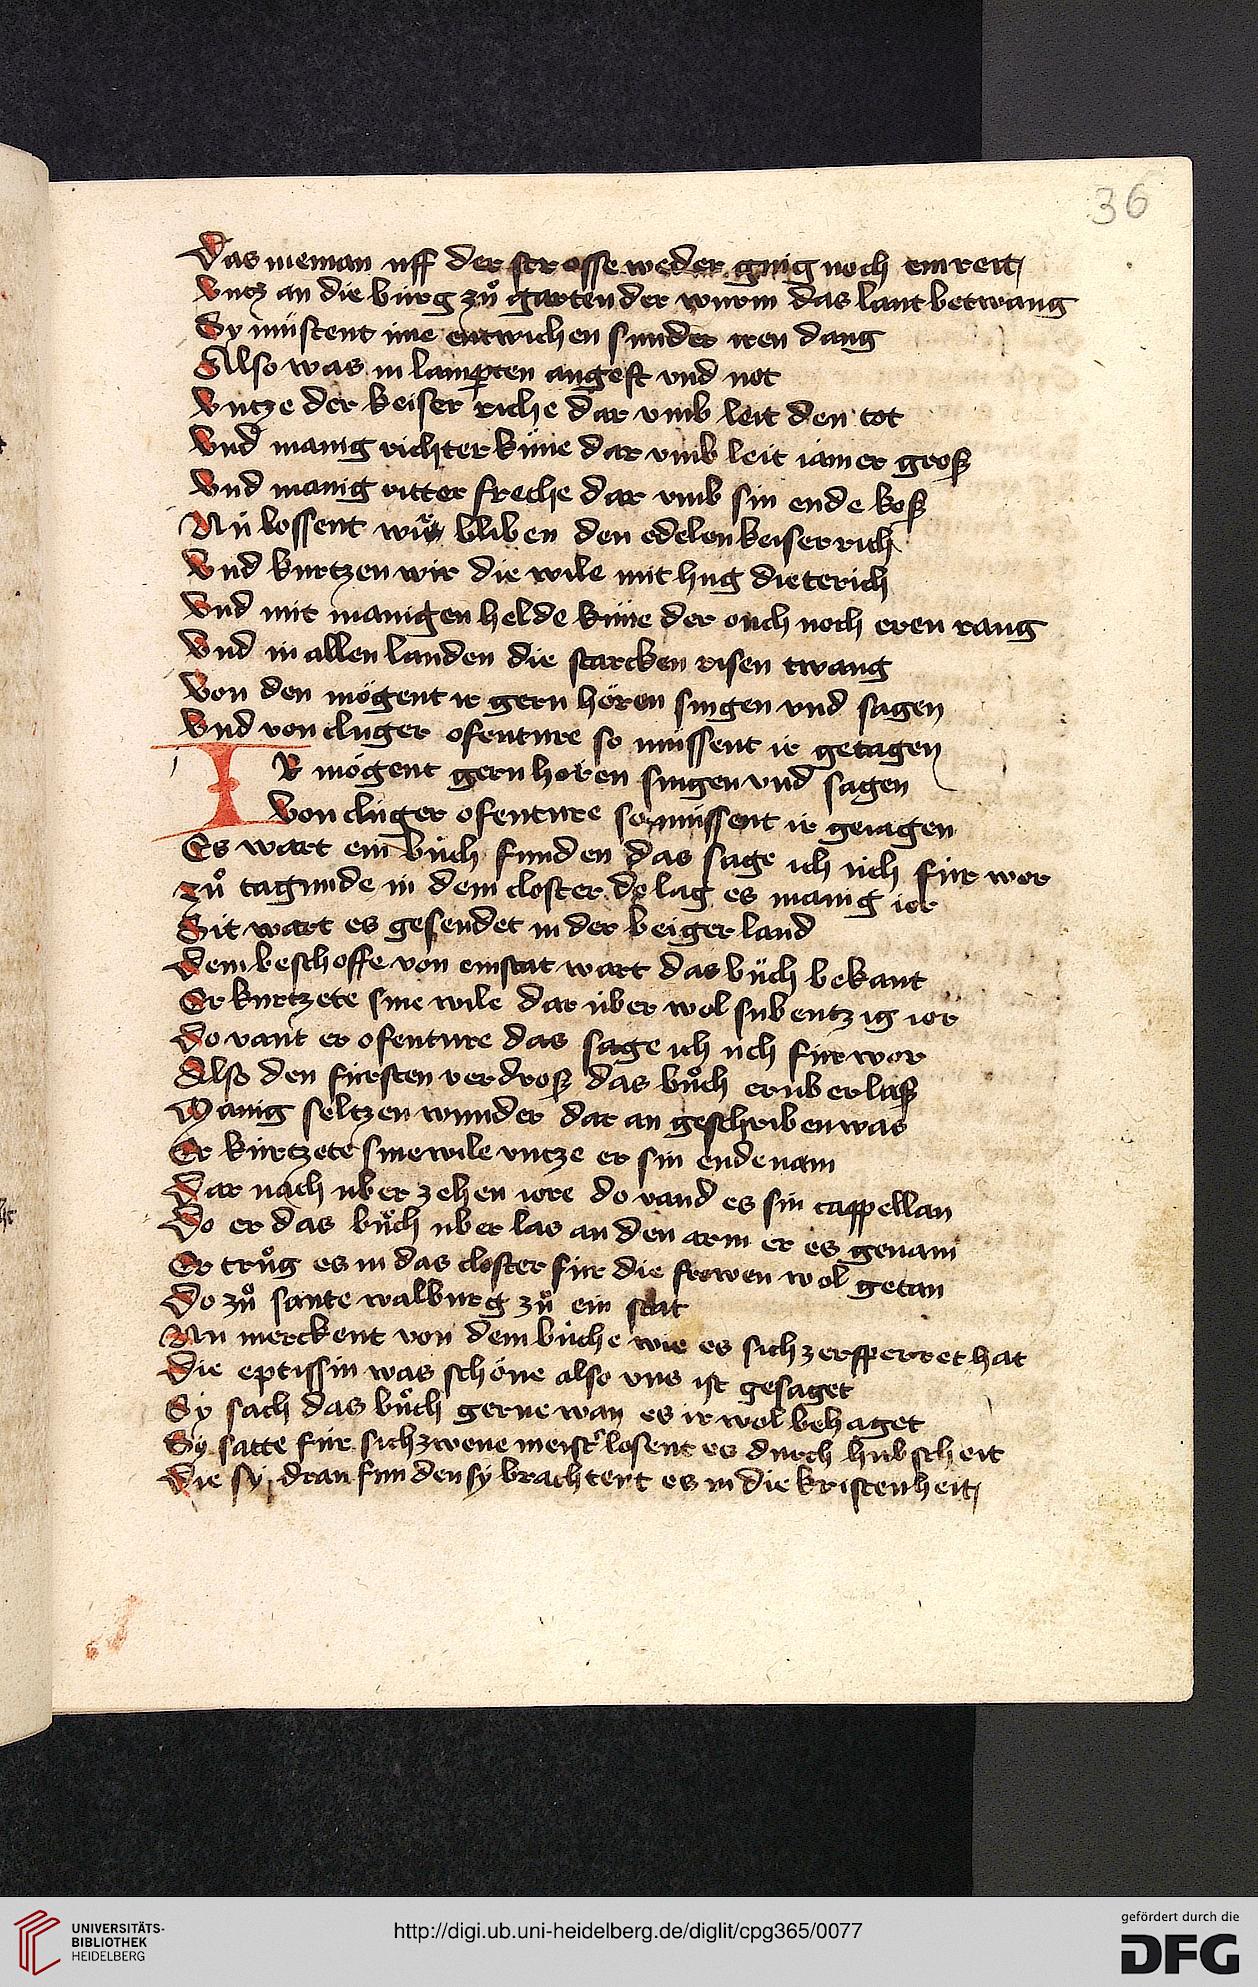 36
Das nieman uff der strosse weder ging noch enreit
Vntz an die burg zuͦ garten der wurm das lant betwang
Sy müstent ime entwichen sunder iren dang
Also was in lamparten angest vnd not
Vntze der keiser riche dar vmb leit den tot
Vnd manig richter küne dar vmb leit iamer groß
Vnd manig ritter freche dar vmb sin ende koß
Nü lossent wir bliben den edelen keiser rich
Vnd kurtzen wir die wile mit hug dieterich
Vnd mit manigen helde küne der ouch noch eren rang
Vnd in allen landen die starcken risen twang
Von den mögent ir gern hören singen vnd sagen
Vnd von cluger ofenture so müssent ir getagen
IR mögent gern horen singen vnd sagen
Von clüger ofenture so müssent ir getagen
Es wart ein büch funden das sage ich üch für wor
Zuͦ tagunde in dem closter do lag es manig ior
Sit wart es gesendet in der beiger land
Dem beschoffe von einstat wart das büch bekant
Er kurtzete sine wile dar über wol subentzig ior
Do vant er ofenture das sage ich uch fürwor
Also den fürsten verdroß das buͦch er überlaß
Manig seltzen wunder dar an geschriben was
Er kürtzete sine wile vntze er sin ende nam
Dar nach uber zehen iore do vand es sin cappellan
Do er das buͦch uber las an den arm er es genam
Er truͦg es in das closter für die frowen wol getan
Do zuͦ sante walburg zuͦ ein stat
Nu merckent von dem büche wie es sich zersperret hat
Die eptissin was schöne also vns ist gesaget
Sy sach das buͦch gerne wan es ir wol behaget
Sy satte für sich zwene meistr̕ losent es durch hubscheit
Die sy dran funden sy brachtent es in die kristenheit
UNIVERSITÄTS-
BIBLIOTHEK
HEIDELBERG
http://digi.ub.uni-heidelberg.de/diglit/cpg365/0077
gefördert durch die
DFG